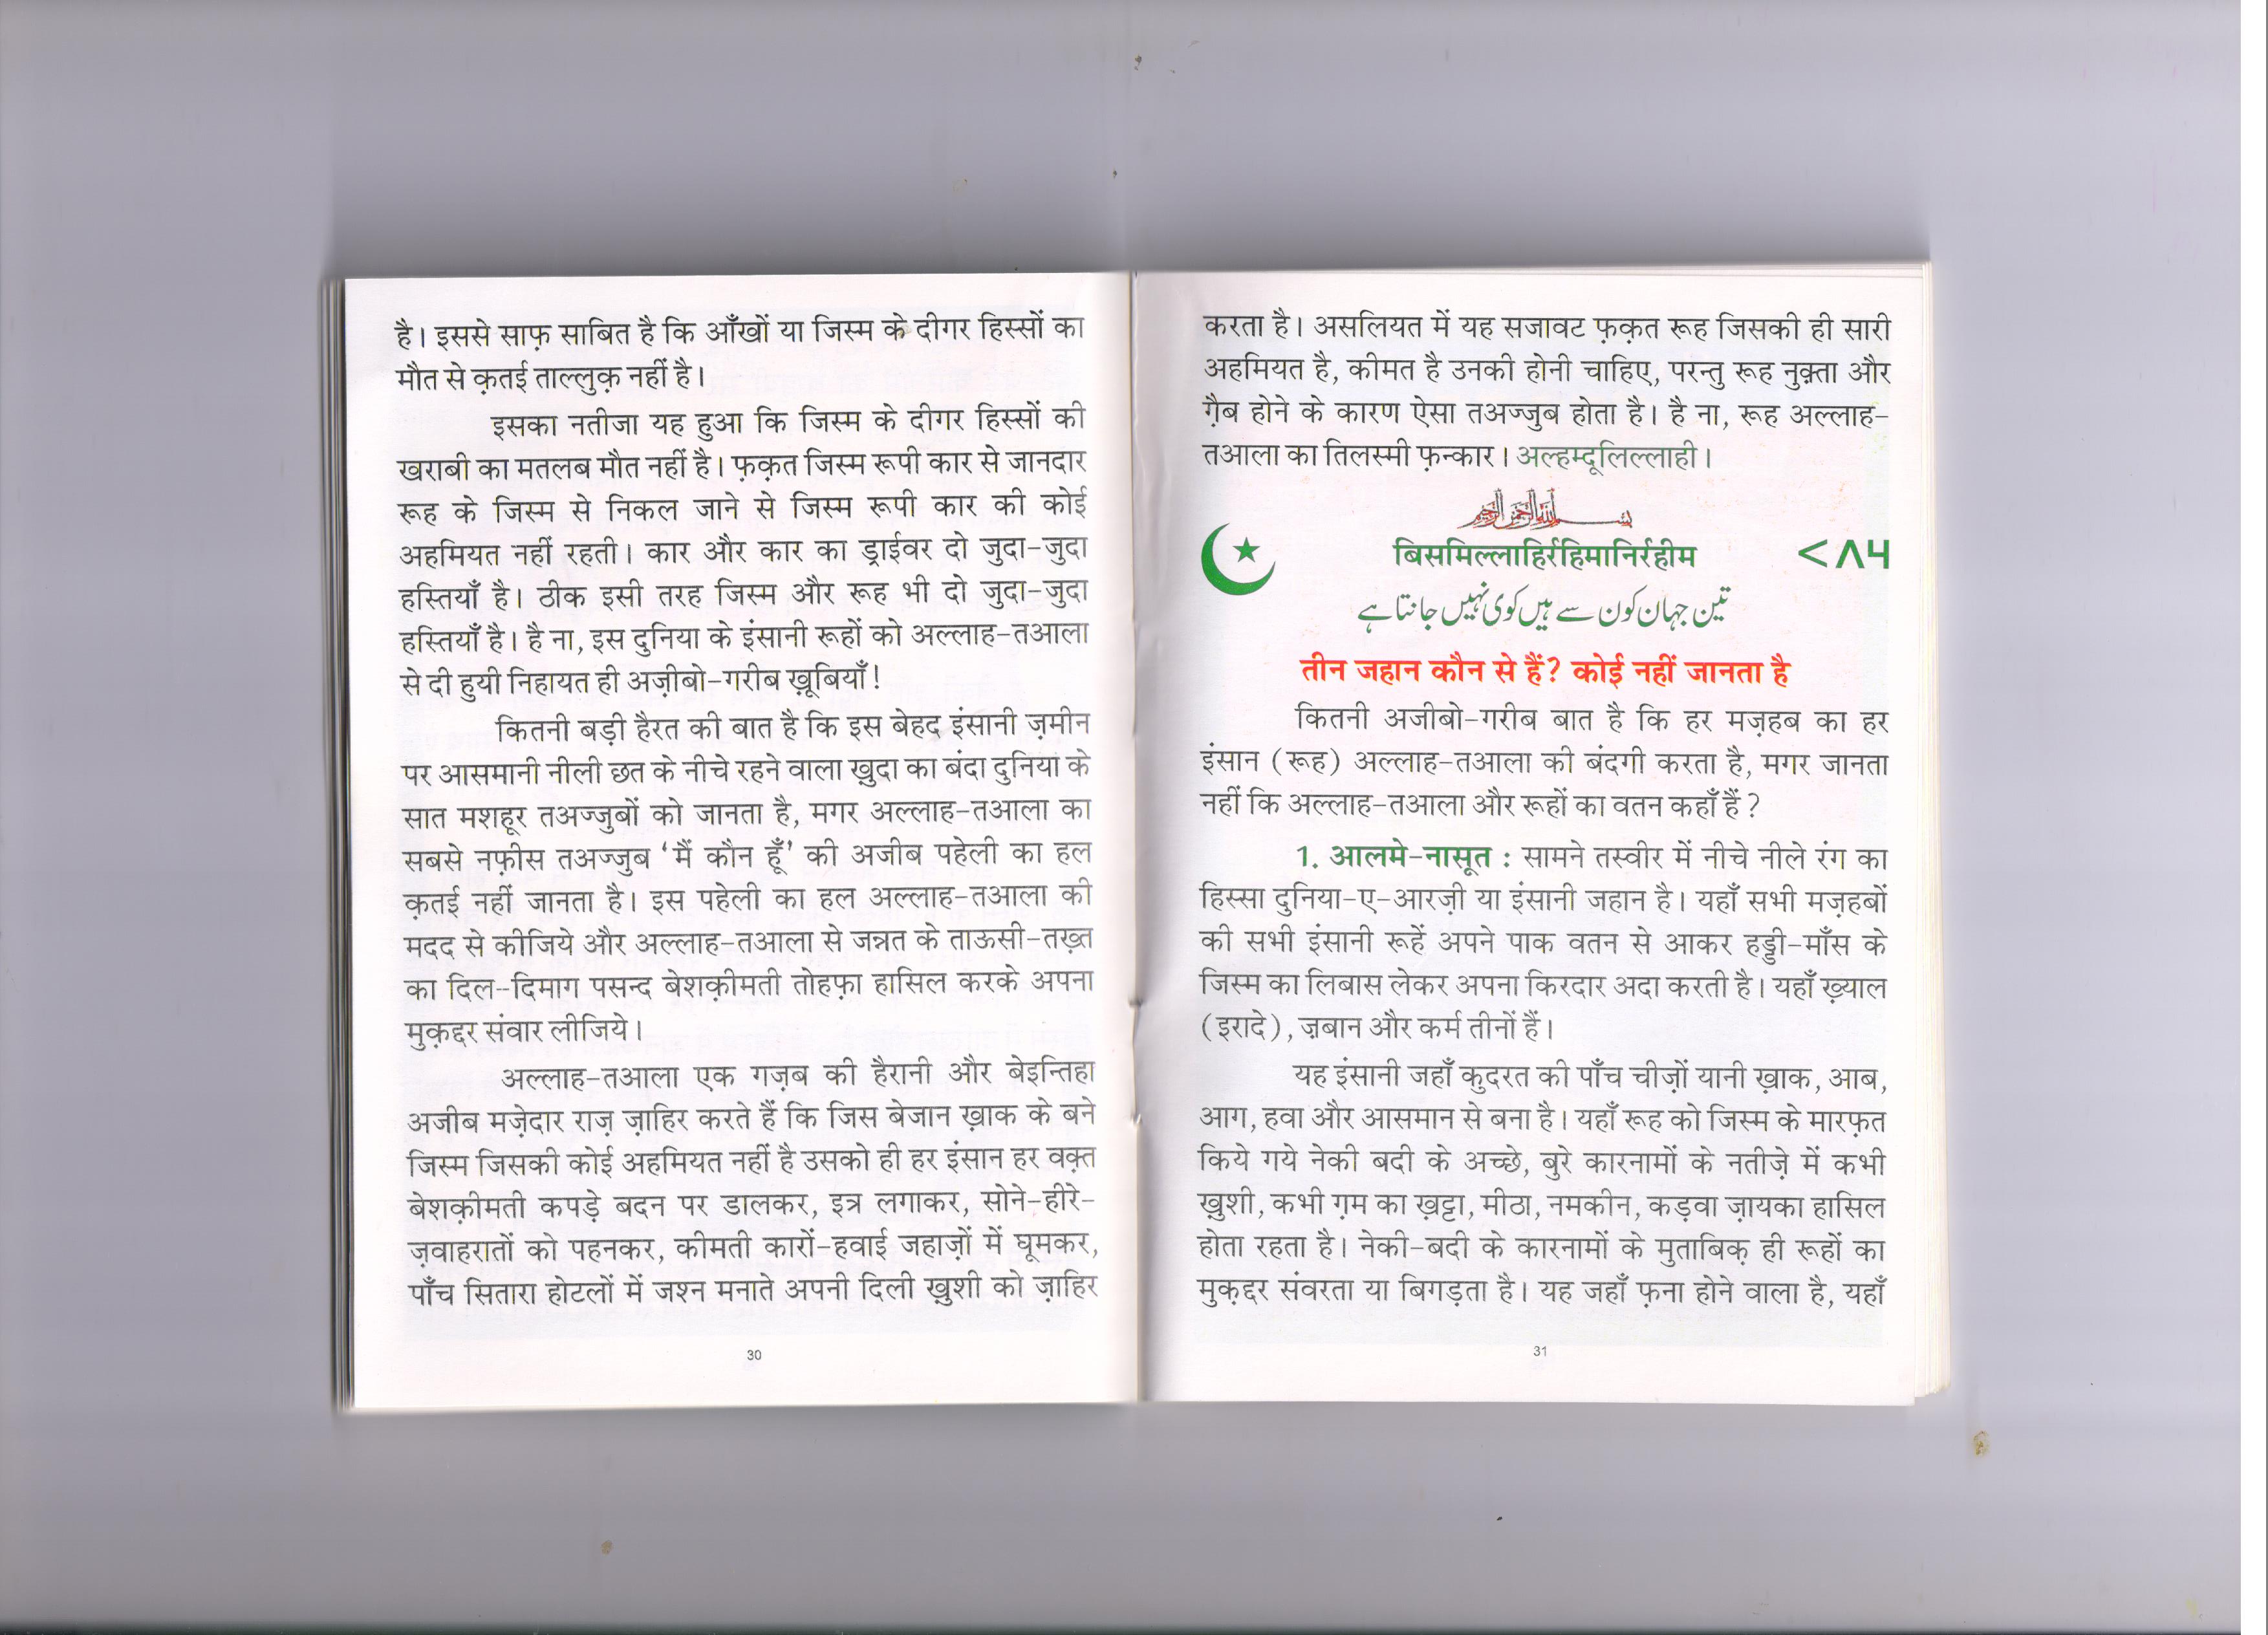 है। इससे साफ़ साबित है कि आँखों या जिस्म के दीगर हिस्सों का
मौत से क़तई ताल्लुक़ नहीं है।
इसका नतीजा यह हुआ कि जिस्म के दीगर हिस्सों की
खराबी का मतलब मौत नहीं है। फ़क़त जिस्म रूपी कार से जानदार
रूह के जिस्म से निकल जाने से जिस्म रूपी कार की कोई
अहमियत नहीं रहती। कार और कार का ड्राईवर दो जुदा-जुदा
हस्तियाँ है। ठीक इसी तरह जिस्म और रूह भी दो जुदा-जुदा
हस्तियाँ है। है ना, इस दुनिया के इंसानी रूहों को अल्लाह-तआला
से दी हुयी निहायत ही अज़ीबो-गरीब ख़ूबियाँ!
कितनी बड़ी हैरत की बात है कि इस बेहद इंसानी ज़मीन
पर आसमानी नीली छत के नीचे रहने वाला ख़ुदा का बंदा दुनिया के
सात मशहूर तअज्जुबों को जानता है, मगर अल्लाह-तआला का
सबसे नफ़ीस तअज्जुब ‘मैं कौन हूँ’ की अजीब पहेली का हल
क़तई नहीं जानता है। इस पहेली का हल अल्लाह-तआला की
मदद से कीजिये और अल्लाह-तआला से जन्नत के ताऊसी-तख़्त
का दिल-दिमाग पसन्द बेशक़ीमती तोहफ़ा हासिल करके अपना
मुक़द्दर संवार लीजिये।
अल्लाह-तआला एक गज़ब की हैरानी और बेइन्तिहा
अजीब मज़ेदार राज़ ज़ाहिर करते हैं कि जिस बेजान ख़ाक के बने
जिस्म जिसकी कोई अहमियत नहीं है उसको ही हर इंसान हर वक़्त
बेशक़ीमती कपड़े बदन पर डालकर, इत्र लगाकर, सोने-हीरे-
ज़वाहरातों को पहनकर, कीमती कारों-हवाई जहाज़ों में घूमकर,
पाँच सितारा होटलों में जश्न मनाते अपनी दिली ख़ुशी को ज़ाहिर
30
करता है। असलियत में यह सजावट फ़क़त रूह जिसकी ही सारी
अहमियत है, कीमत है उनकी होनी चाहिए, परन्तु रूह नुक़्ता और
ग़ैब होने के कारण ऐसा तअज्जुब होता है। है ना, रूह अल्लाह-
तआला का तिलस्मी फ़न्कार। अल्हम्दूलिल्लाही।
بسم الله الرحمن الرحيم
बिसमिल्लाहिर्रहिमानिर्रहीम
<٨५
تین جہان کون سے ہیں کوی نہیں جانتا ہے
तीन जहान कौन से हैं? कोई नहीं जानता है
कितनी अजीबो-गरीब बात है कि हर मज़हब का हर
इंसान (रूह) अल्लाह-तआला की बंदगी करता है, मगर जानता
नहीं कि अल्लाह-तआला और रूहों का वतन कहाँ हैं?
1. आलमे-नासूत : सामने तस्वीर में नीचे नीले रंग का
हिस्सा दुनिया-ए-आरज़ी या इंसानी जहान है। यहाँ सभी मज़हबों
की सभी इंसानी रूहें अपने पाक वतन से आकर हड्डी-माँस के
जिस्म का लिबास लेकर अपना किरदार अदा करती है। यहाँ ख़्याल
(इरादे), ज़बान और कर्म तीनों हैं।
यह इंसानी जहाँ कुदरत की पाँच चीज़ों यानी ख़ाक, आब,
आग, हवा और आसमान से बना है। यहाँ रूह को जिस्म के मारफ़त
किये गये नेकी बदी के अच्छे, बुरे कारनामों के नतीज़े में कभी
ख़ुशी, कभी ग़म का ख़ट्टा, मीठा, नमकीन, कड़वा ज़ायका हासिल
होता रहता है। नेकी-बदी के कारनामों के मुताबिक़ ही रूहों का
मुक़द्दर संवरता या बिगड़ता है। यह जहाँ फ़ना होने वाला है, यहाँ
31